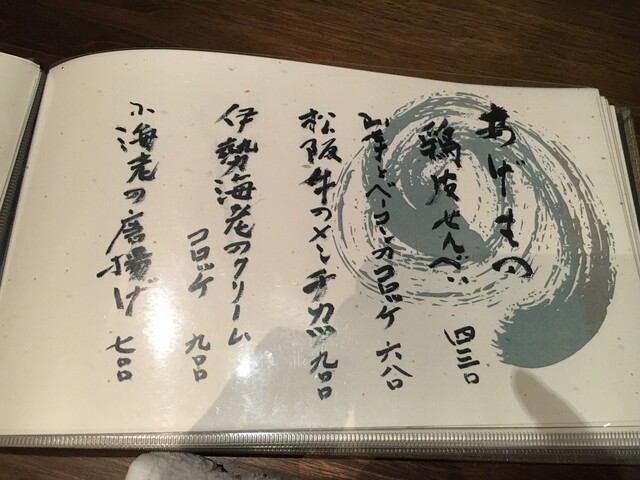 あげもの
鶏皮せんべい 四三〇
とベーコンのコロッケ 六八〇
松阪牛のメンチカツ 九〇〇
伊勢海老のクリーム
コロッケ 九〇〇
小海老の唐揚げ 七〇〇